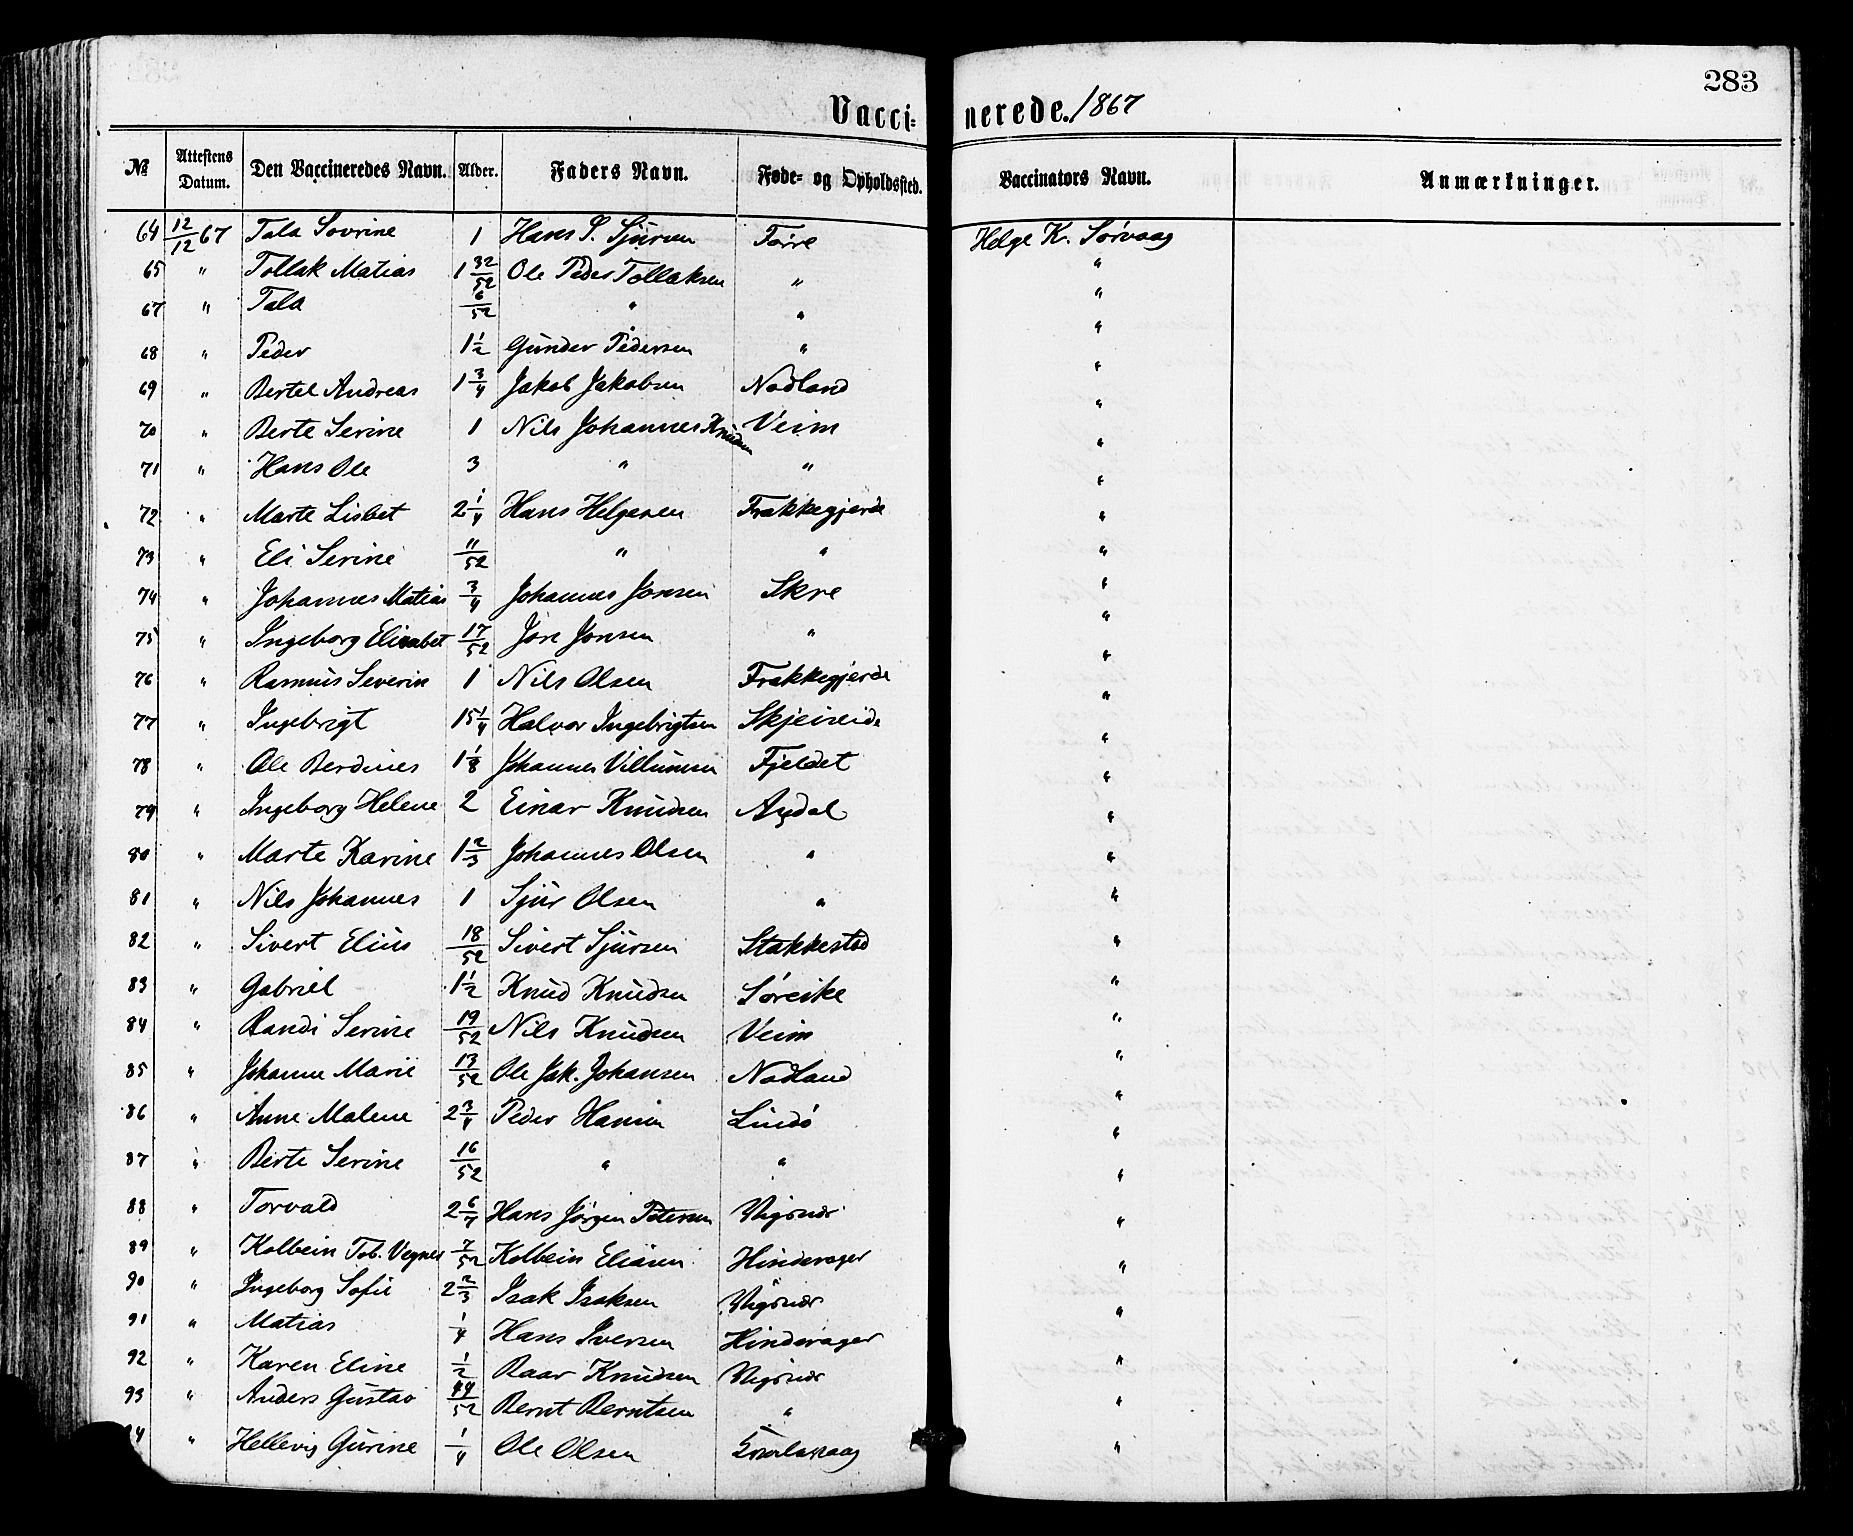 283
Vaccinerede. 1867
№ Attestens Datum. Den Vaccineredes Navn. Alder. Faders Navn. Føde- og Opholdssted. Vaccinators Navn. Anmærkninger.
64 12/12 67 Tala Sovrine 1 Hans S. Sjursen Førre Helge K. Sørvaag
65 " Tollak Matias 1 32/52 Ole Peder Tollaksen " "
67 " Tala 6/52 " " "
68 " Peder 1 1/2 Gunder Pedersen " "
69 " Bertel Andreas 1 3/4 Jakob Jakobsen Nodland "
70 " Berte Serine 1 Nils Johannes Knudsen Veim "
71 " Hans Ole 3 " " "
72 " Marte Lisbet 2 1/4 Hans Helgesen Frakkegjerde "
73 " Eli Serine 11/52 " " "
74 " Johannes Matias 3/4 Johannes Jonsen Skre "
75 " Ingeborg Elisabet 17/52 Jon Jonsen " "
76 " Rasmus Severin 1 Nils Olsen Frakkegjerde "
77 " Ingebrigt 15 1/4 Halvor Ingebrigtsen "
78 " Ole Berdines 1 1/8 Johannes Villumsen Fjeldet "
79 " Ingeborg Helene 2 Einar Knudsen "
80 " Marte Karine 1 2/3 Johannes Olsen " "
81 " Nils Johannes 1 Sjur Olsen " "
82 " Sivert Elius 18/52 Sivert Sjursen Stakkestad "
83 " Gabriel 1 1/2 Knud Knudsen Søreike "
84 " Randi Serine 19/52 Nils Knudsen Veim "
85 " Johanne Marie 13/52 Ole Jak. Johansen Nodland "
86 " Anne Malene 2 3/4 Peder Hansen Lindø "
87 " Berte Serine 16/52 " " "
88 " Torvald 2 6/7 Hans Jørgen Petersen Vigsnæs "
89 " Kolbein Tob. Vegner 7/52 Kolbein Eliasen Hinderager "
90 " Ingeborg Sofie 2 2/3 Isak Isaksen Vigsnæs "
91 " Matias 1/4 Hans Iversen Hinderager "
92 " Karen Eline 1/2 Baar Knudsen Vigsnæs "
93 " Anders Gustav 44/52 Bernt Berntsen " "
" Hellevig Gurine 1/4 Ole Olsen "